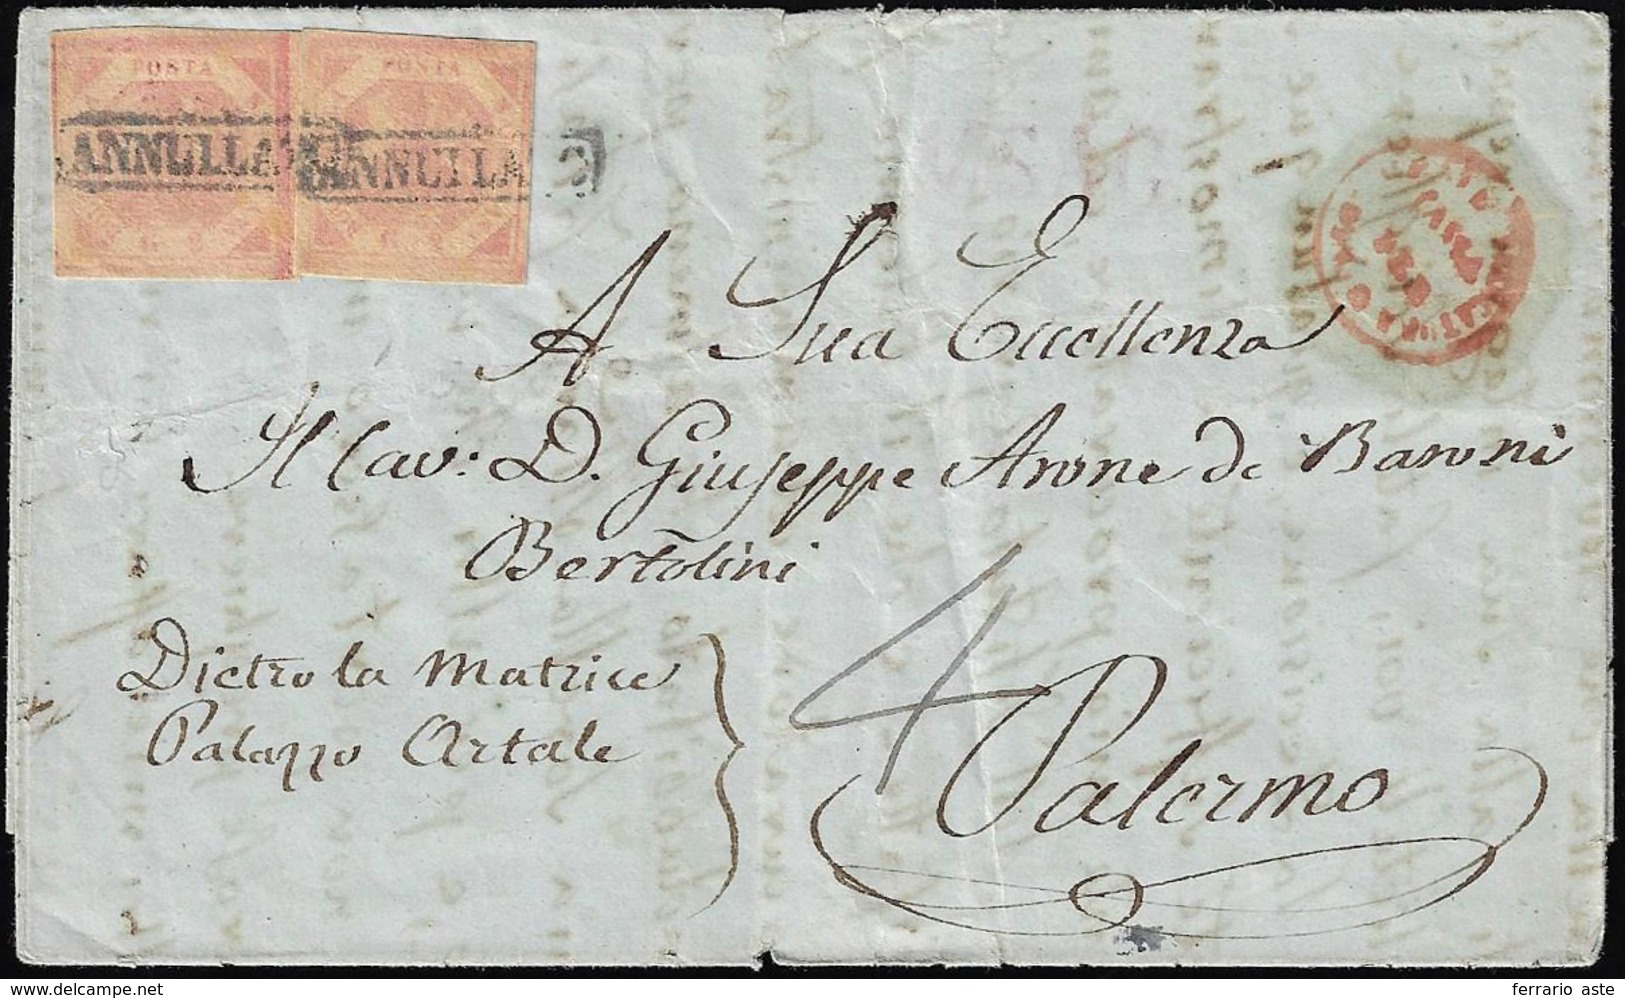 POSTA POSTA
ANNULLA ANNULLA
A Sua Eccellenza
Il Cav: D. Giuseppe Arone de Baroni
Bertolini
Dietro la Matrice
Palazzo Artale
4
Palermo
ferrario aste